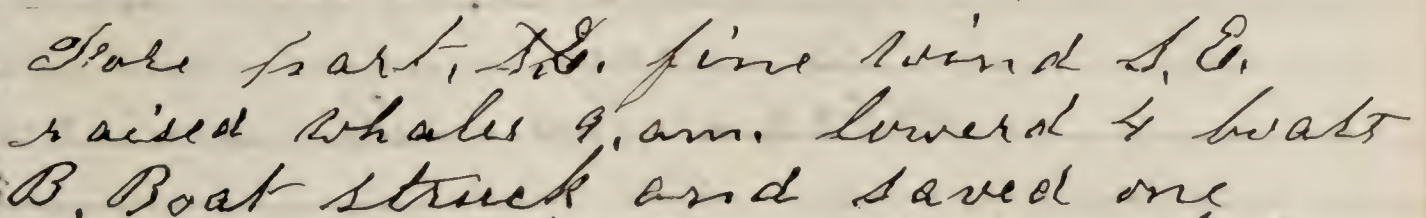 Fore part, fine wind S.E.
raised whales 9, am. lowerd 4 boats
B. Boat struck and saved one